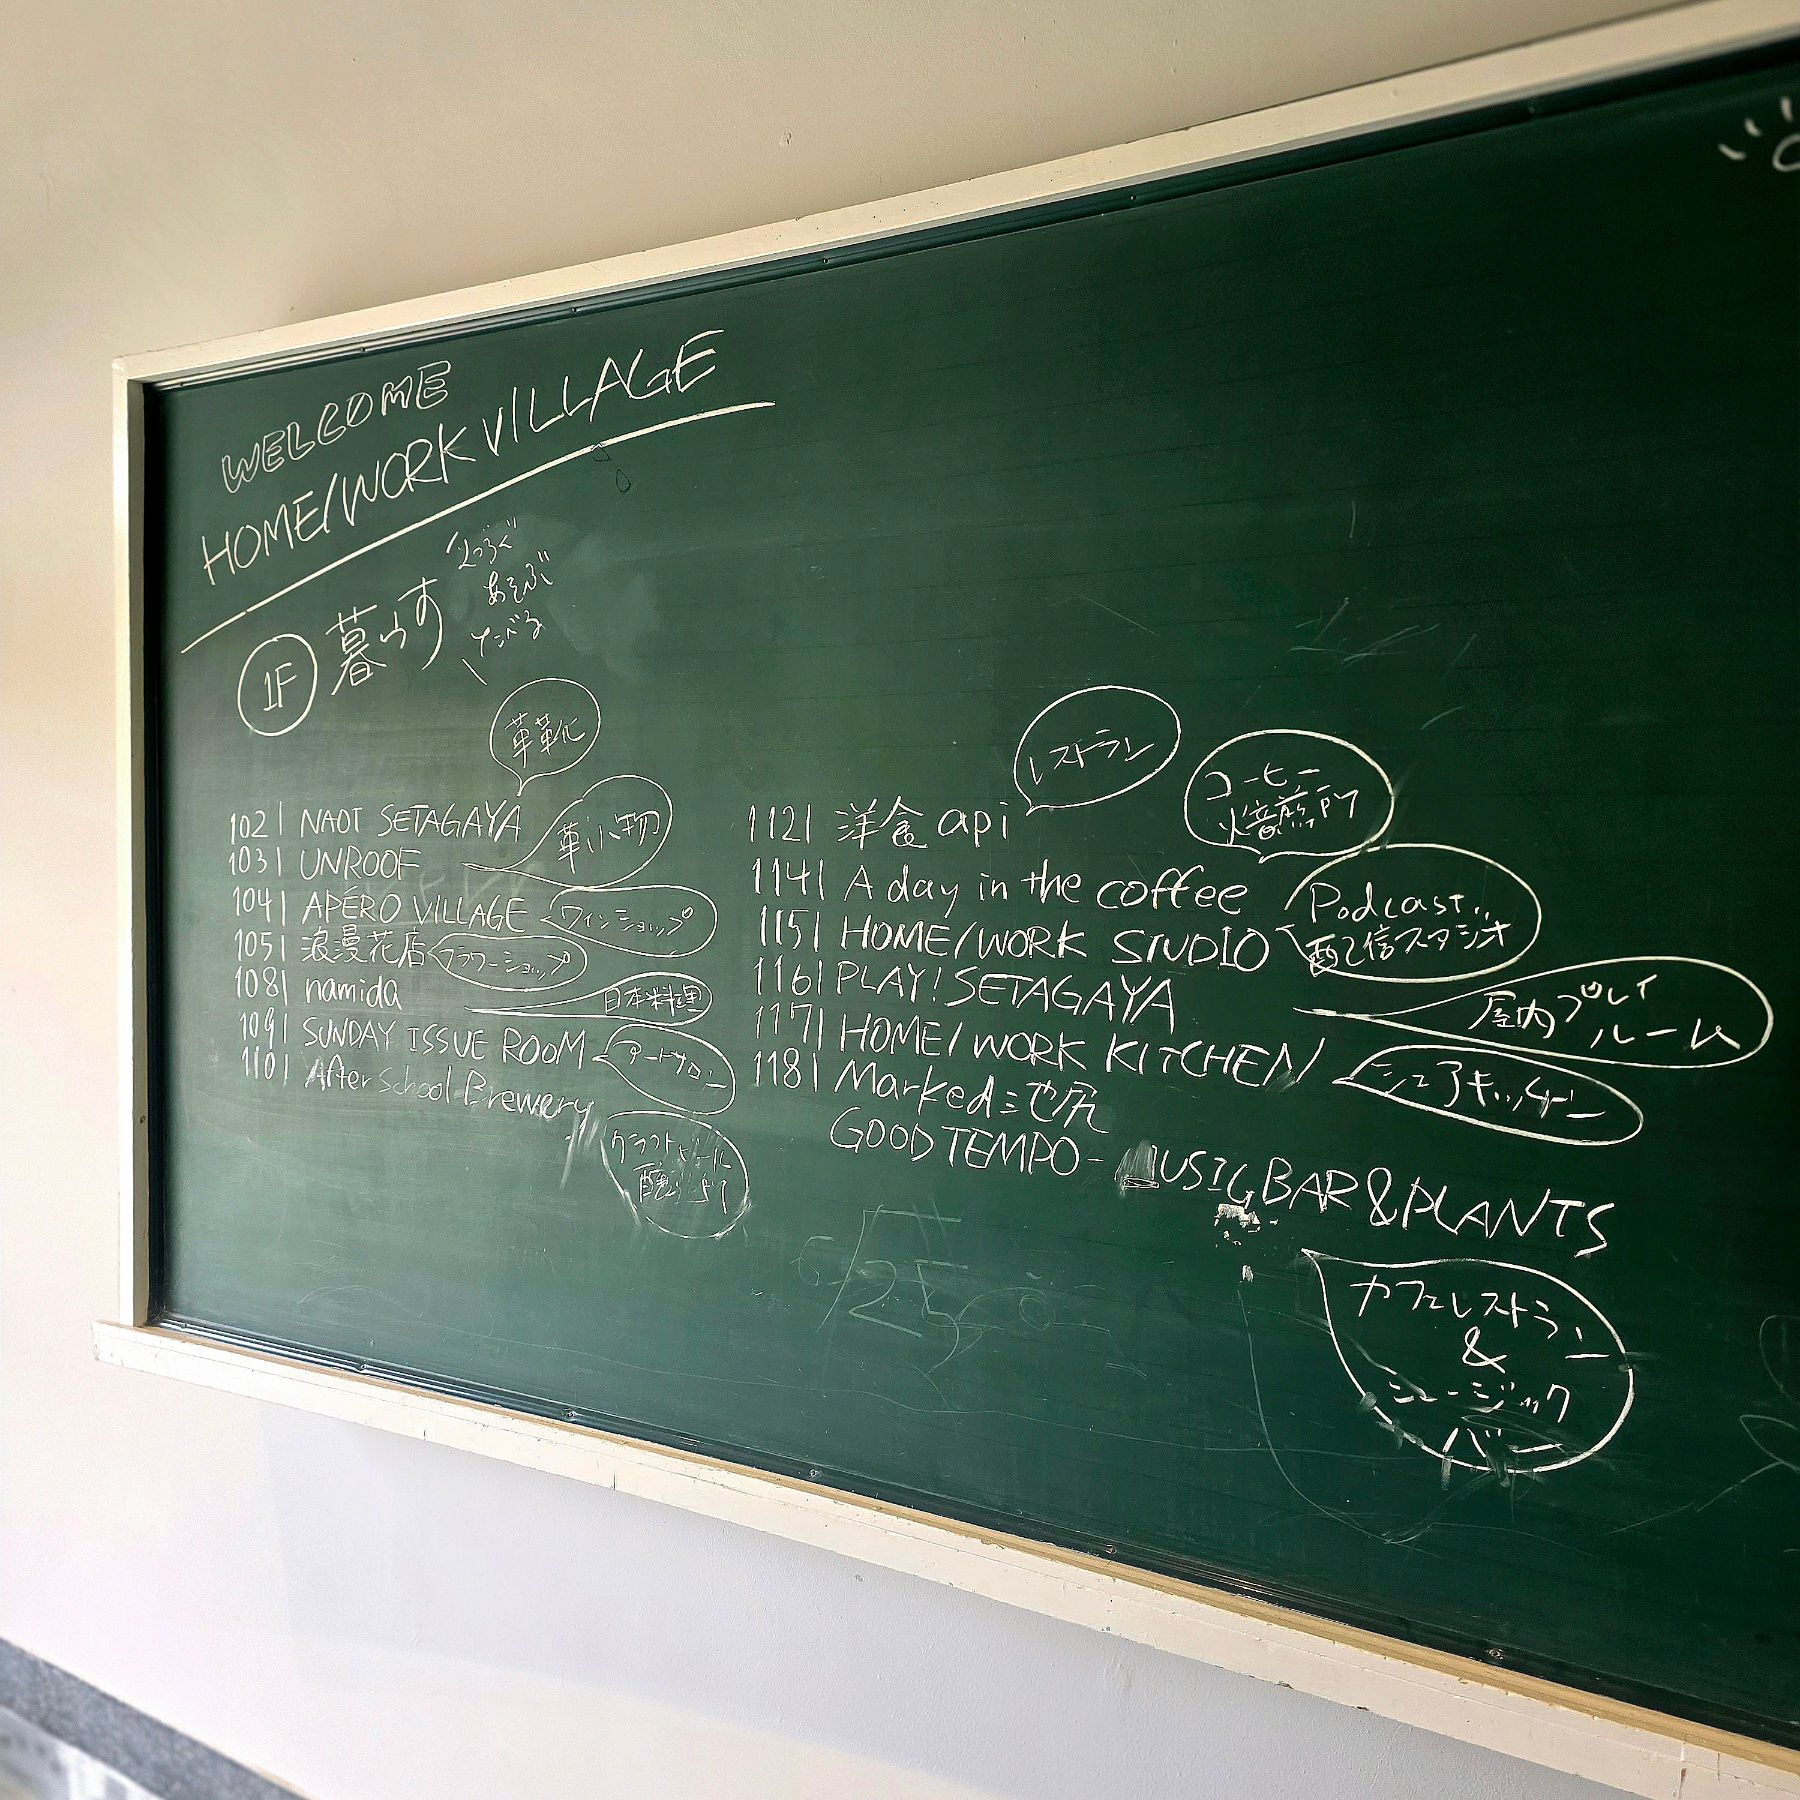 WELCOME
HOME/WORK VILLAGE
1F 暮らす
くつろぐ
あそぶ
たべる
革靴
102| NAOT SETAGAYA
革小物
103| UNROOF
104| APÉRO VILLAGE ワインショップ
105| 浪漫花店 フラワーショップ
108| namida 日本料理
109| SUNDAY ISSUE ROOM アートサロン
110| After School Brewery
クラフトビール
醸造所
レストラン
112| 洋食 api
コーヒー
焙煎所
114| A day in the coffee
115| HOME/WORK STUDIO
Podcast
配信スタジオ
116| PLAY! SETAGAYA
屋内プレイ
ルーム
117| HOME/WORK KITCHEN シェアキッチン
118| Marked 三池尻
GOOD TEMPO- MUSIC BAR & PLANTS
カフェレストラン
&
ミュージック
バー